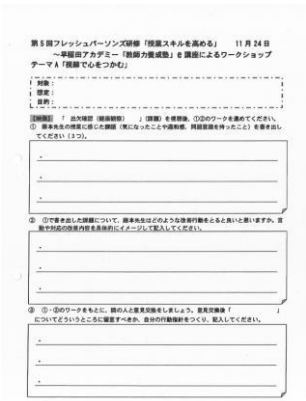 第5回フレッシュパーソンズ研修「授業スキルを高める」　11月24日
～早稲田アカデミー「教師力養成塾」e講座によるワークショップ
テーマA「視線で心をつかむ」
対象：
想定：
目的：
【映像】「 出欠確認（健康観察） 」（課題）を視聴後、①②のワークを進めてください。
① 藤本先生の授業に感じた課題（気になったことや違和感、問題意識を持ったこと）を書き出し
てください（3つ）。
・
・
・
② ①で書き出した課題について、藤本先生はどのような改善行動をとると良いと思いますか。言
動や対応の改善内容を具体的にイメージして記入してください。
・
・
・
③ ①・②のワークをもとに、隣の人と意見交換をしましょう。意見交換後「 」
についてどういうところに留意すべきか、自分の行動指針をつくり、記入してください。
・
・
・